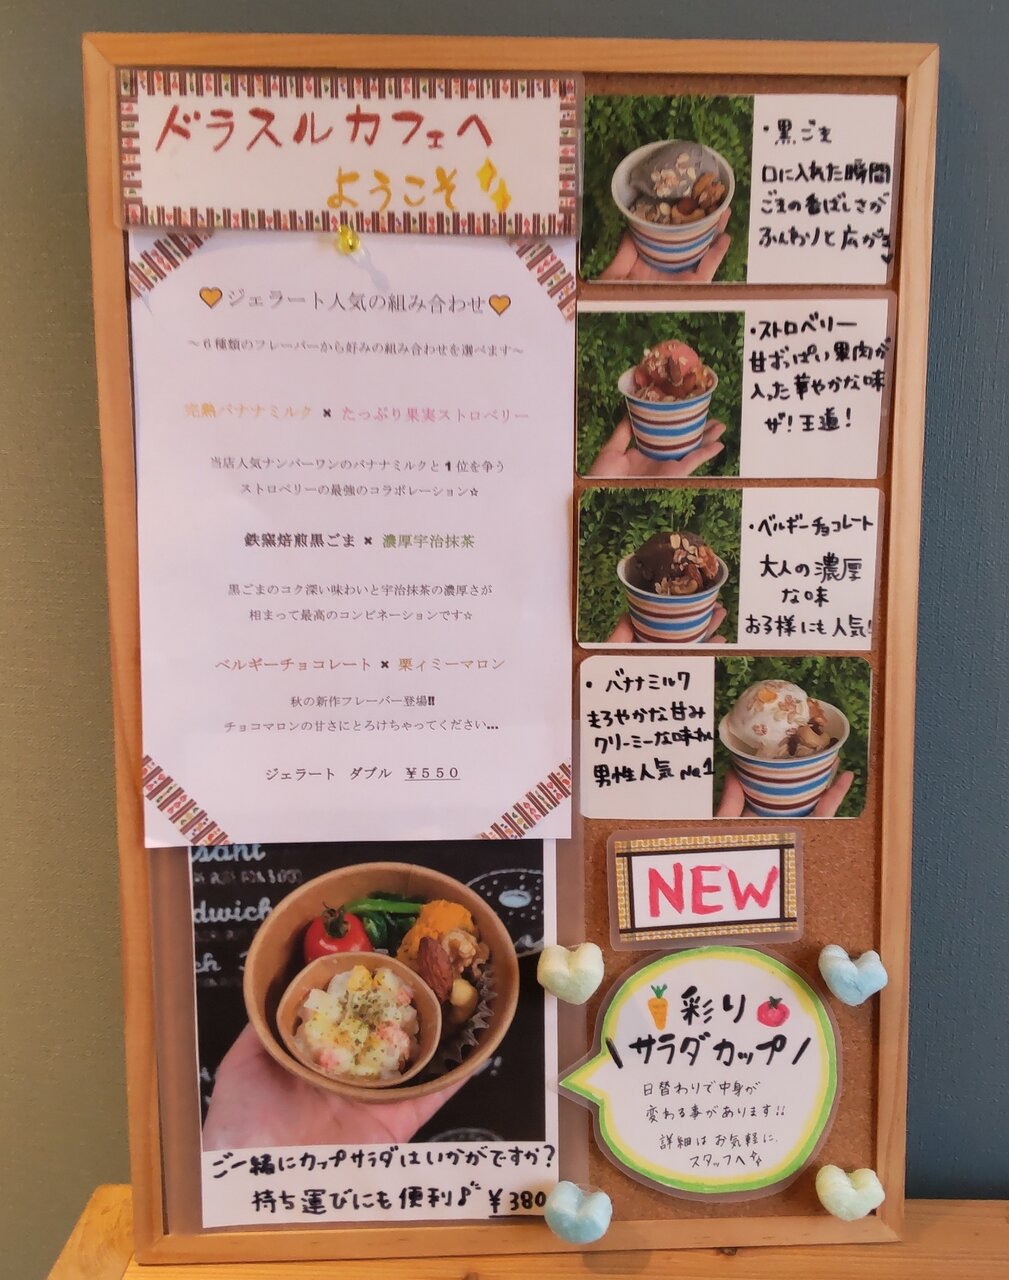 ドラスルカフェへ
ようこそ
🧡ジェラート人気の組み合わせ🧡
～6種類のフレーバーから好みの組み合わせを選べます～
完熟バナナミルク ✖ たっぷり果実ストロベリー
当店人気ナンバーワンのバナナミルクと1位を争う
ストロベリーの最強のコラボレーション☆
鉄窯焙煎黒ごま ✖ 濃厚宇治抹茶
黒ごまのコク深い味わいと宇治抹茶の濃厚さが
相まって最高のコンビネーションです☆
ベルギーチョコレート ✖ 栗ィミーマロン
秋の新作フレーバー登場‼
チョコマロンの甘さにとろけちゃってください…
ジェラート ダブル ¥550
・黒ごま
口に入れた瞬間
ごまの香ばしさが
ふんわりと広がる
・ストロベリー
甘ずっぱい果肉が
入った華やかな味
ザ!王道!
・ベルギーチョコレート
大人の濃厚
な味
お子様にも人気!
・バナナミルク
まろやかな甘み
クリーミーな味わい
男性人気No1
dwich
ご一緒にカップサラダはいかがですか?
持ち運びにも便利♪ ¥380
NEW
彩り
\サラダカップ/
日替わりで中身が
変わる事があります!!
詳細はお気軽に
スタッフへ